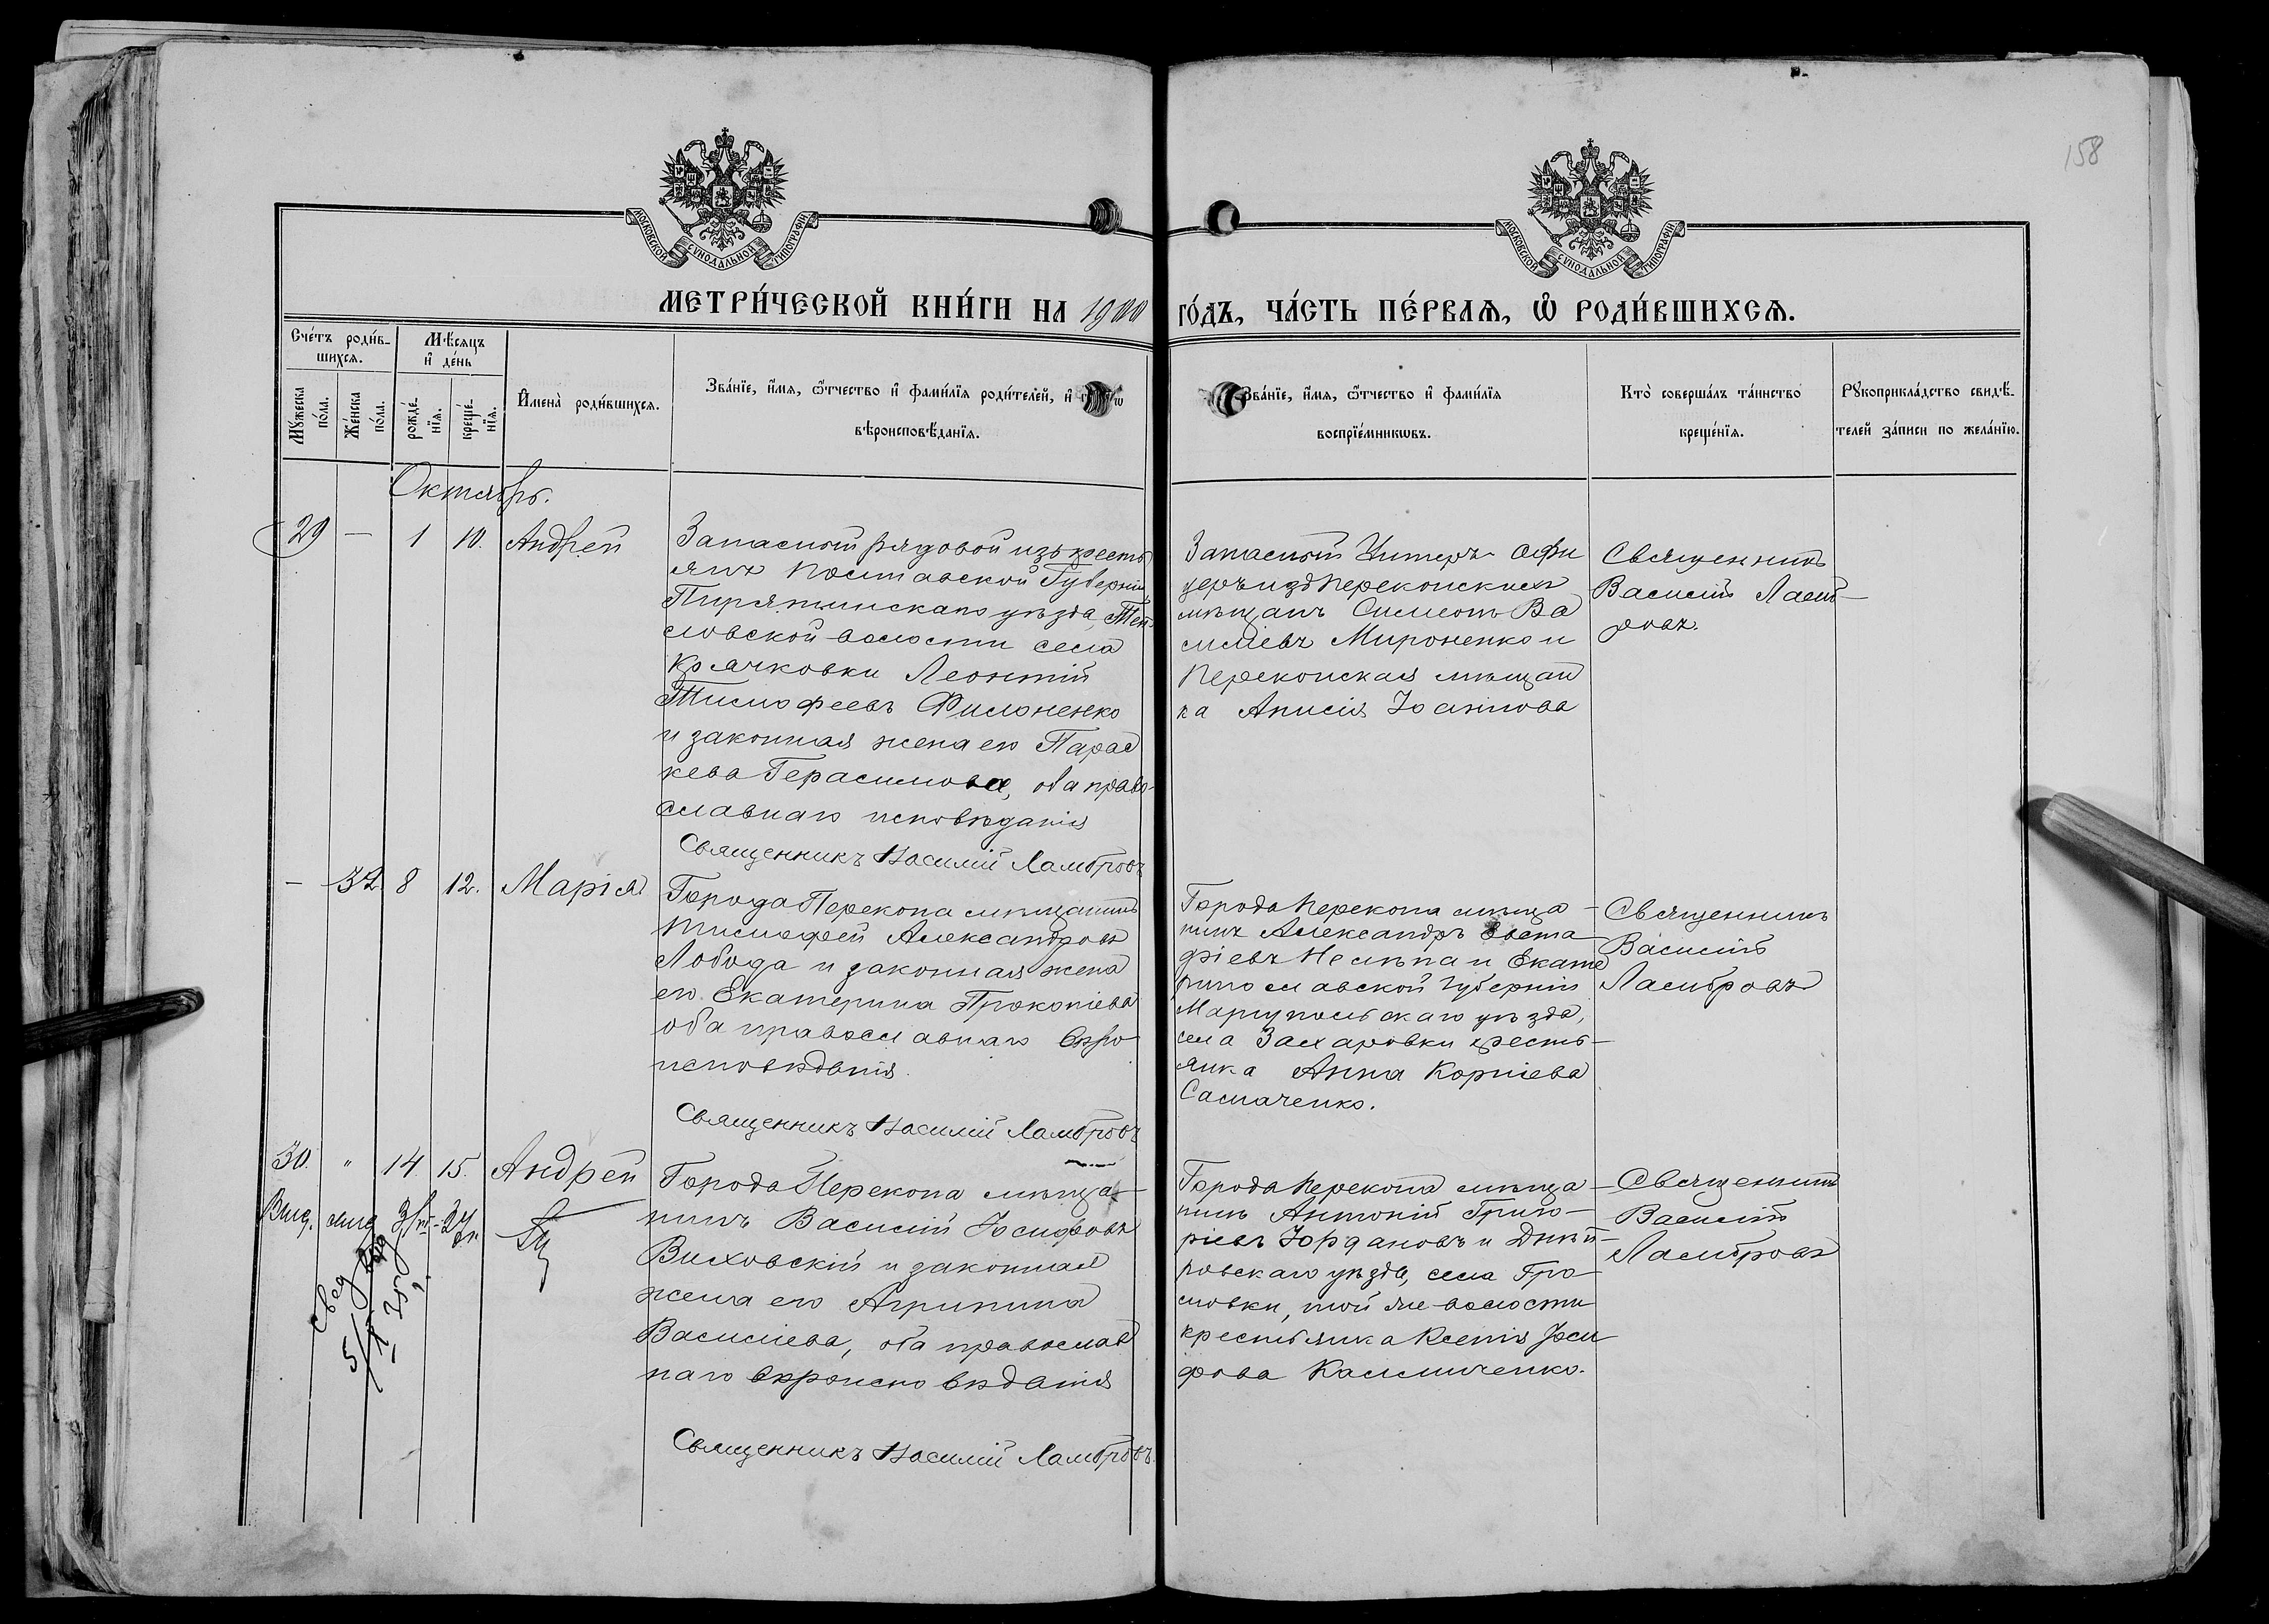 158
МОСКОВСКОЙ СУНОДАЛЬНОЙ ТИПОГРАФІИ
МОСКОВСКОЙ СУНОДАЛЬНОЙ ТИПОГРАФІИ
МЕТРИ́ЧЕСКОЙ КНИ́ГИ НА 1900 ГО́ДЪ, ЧА́СТЬ ПЕ́РВАѦ, Ѡ҆ РОДИ́ВШИХСѦ.
Сче́тъ роди́в-
шихсѧ.
Мѣ́сѧцъ
и҆ де́нь
Мꙋ́жеска
по́ла.
Же́нска
по́ла.
рожде́-
нїѧ.
креще́-
нїѧ.
И҆мена̀ роди́вшихсѧ.
Зва́нїе, и҆́мѧ, ѻ҆́тчество и҆ фами́лїѧ роди́телей, и҆
вѣроисповѣ́данїѧ.
Зва́нїе, и҆́мѧ, ѻ҆́тчество и҆ фами́лїѧ
воспрїе́мникѡвъ.
Кто̀ соверша́лъ та́инство
креще́нїѧ.
Рꙋкоприкла́дство свидѣ́-
телей за́писи по жела́нїю.
Октябрь.
29 — 1 10. Андрей
Запасной рядовой изъ кресть
янъ Полтавской Губерніи
Пирятинскаго уѣзда,
словской волости села
Крячковки Леонтій
Тимофеевъ Филоненко
и законная жена его Парас
кева Герасимова, оба право-
славнаго исповѣданія
Священникъ Василій Ламбровъ
Запасной Унтеръ-Офи
церъ изъ Перекопскихъ
мѣщанъ Симеонъ Ва
силіевъ Мироненко и
Перекопская мѣщан
ка Анисія Іоаннова
Священникъ
Василій Ламб-
ровъ.
— 32 8 12. Марія
Города Перекопа мѣщанинъ
Тимофей Александровъ
Лобода и законная жена
его Екатерина Прокопіева
оба православнаго вѣро
исповѣданія.
Священникъ Василій Ламбровъ
Города Перекопа мѣща-
нинъ Александръ Евста
фіевъ и Екате
ринославской губерніи
Маріупольскаго уѣзда,
села Захаровки кресть-
янка Анна Корніева
Самаченко.
Священникъ
Василій
Ламбровъ
30. " 14 15. Андрей
Города Перекопа мѣща-
нинъ Василій Іосифовъ
Виховскій и законная
жена его Агрипина
Василіева, оба православ
наго вѣроисповѣданія
Священникъ Василій Ламбровъ.
Города Перекопа мѣща-
нинъ Антоній Григо-
ріевъ Іордановъ и Днѣп-
ровскаго уѣзда, села Гро-
мовки, той же волости
крестьянка Ксенія Іоси
фова Калиниченко.
Священникъ
Василій
Ламбровъ
Выд.